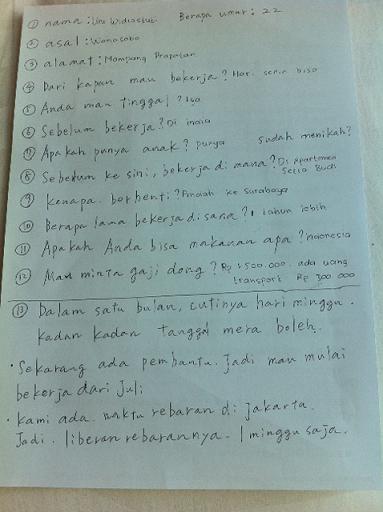 ① nama : Uni Widiastuti Berapa umur : 22
② asal : Wonosobo
③ alamat : Mampang Prapatan
④ Dari kapan mau bekerja? Hari senin bisa
⑤ Anda mau tinggal? Iya
⑥ Sebelum bekerja? Di
⑦ Apakah punya anak? punya sudah menikah?
⑧ Sebelum ke sini, bekerja di mana? Di Apartmen
Setia Budi
⑨ Kenapa berhenti? Pindah ke Surabaya
⑩ Berapa lama bekerja disana? 1 tahun lebih
⑪ Apakah Anda bisa makanan apa? Indonesia
⑫ Mau minta gaji dong? Rp 1.500.000. ada uang
transport Rp 300 000
⑬ Dalam satu bulan, cutinya hari minggu.
kadan kadan tanggal mera boleh.
• Sekarang ada pembantu. Jadi mau mulai
bekerja dari Juli
• kami ada waktu rebaran di jakarta.
Jadi. liburan rebarannya. 1 minggu saja.